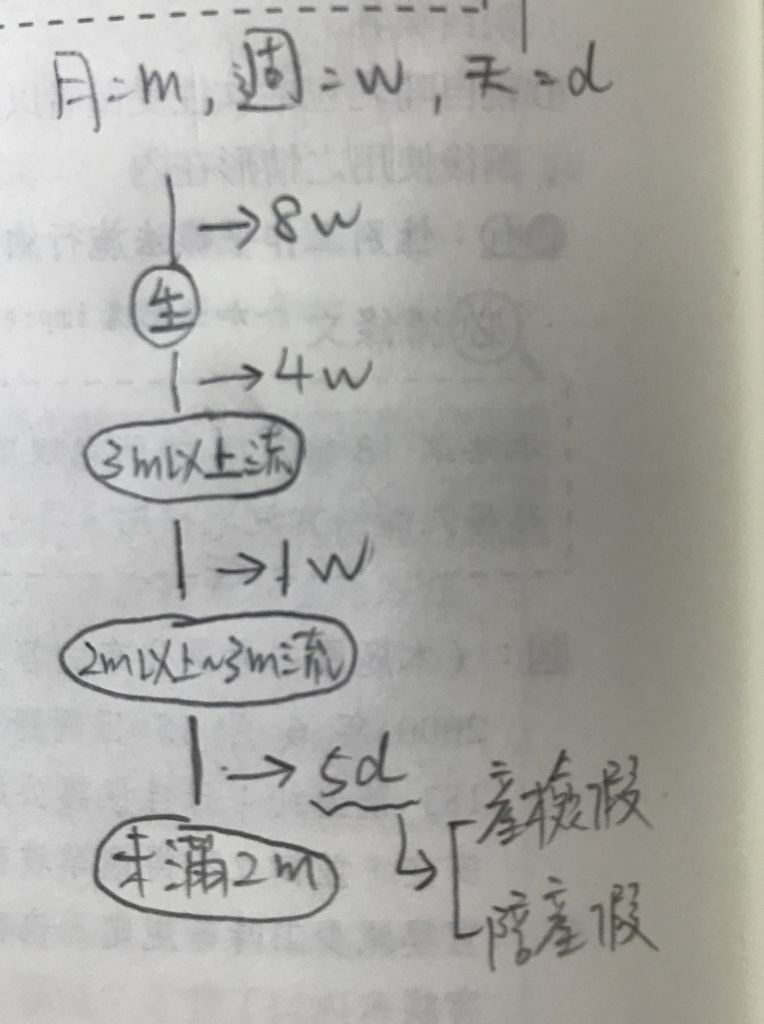 月=m,週=w,天=d
→8w
生
→4w
3m以上流
→1w
2m以上~3m流
→5d
產檢假
未滿2m
陪產假